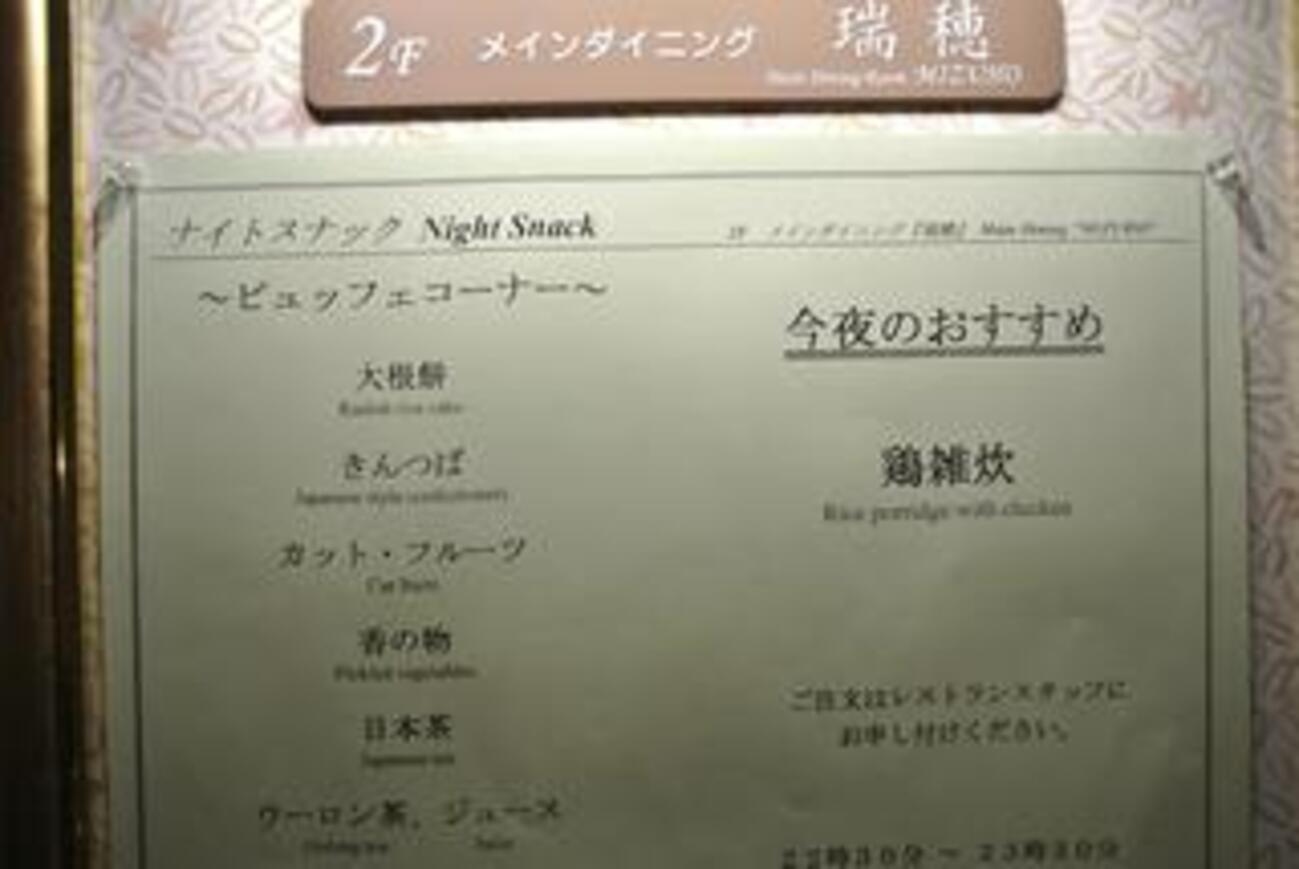 2F メインダイニング 瑞穂
Main Dining Room MIZUHO
ナイトスナック Night Snack
2F メインダイニング『瑞穂』 Main Dining "MIZUHO"
～ビュッフェコーナー～
大根餅
Radish rice cake
きんつば
Japanese style confectionery
カット・フルーツ
Cut fruits
香の物
Pickled vegetables
日本茶
Japanese tea
ウーロン茶、ジュース
Oolong tea Juice
今夜のおすすめ
鶏雑炊
Rice porridge with chicken
ご注文はレストランスタッフに
お申し付けください。
22時30分 ～ 23時30分